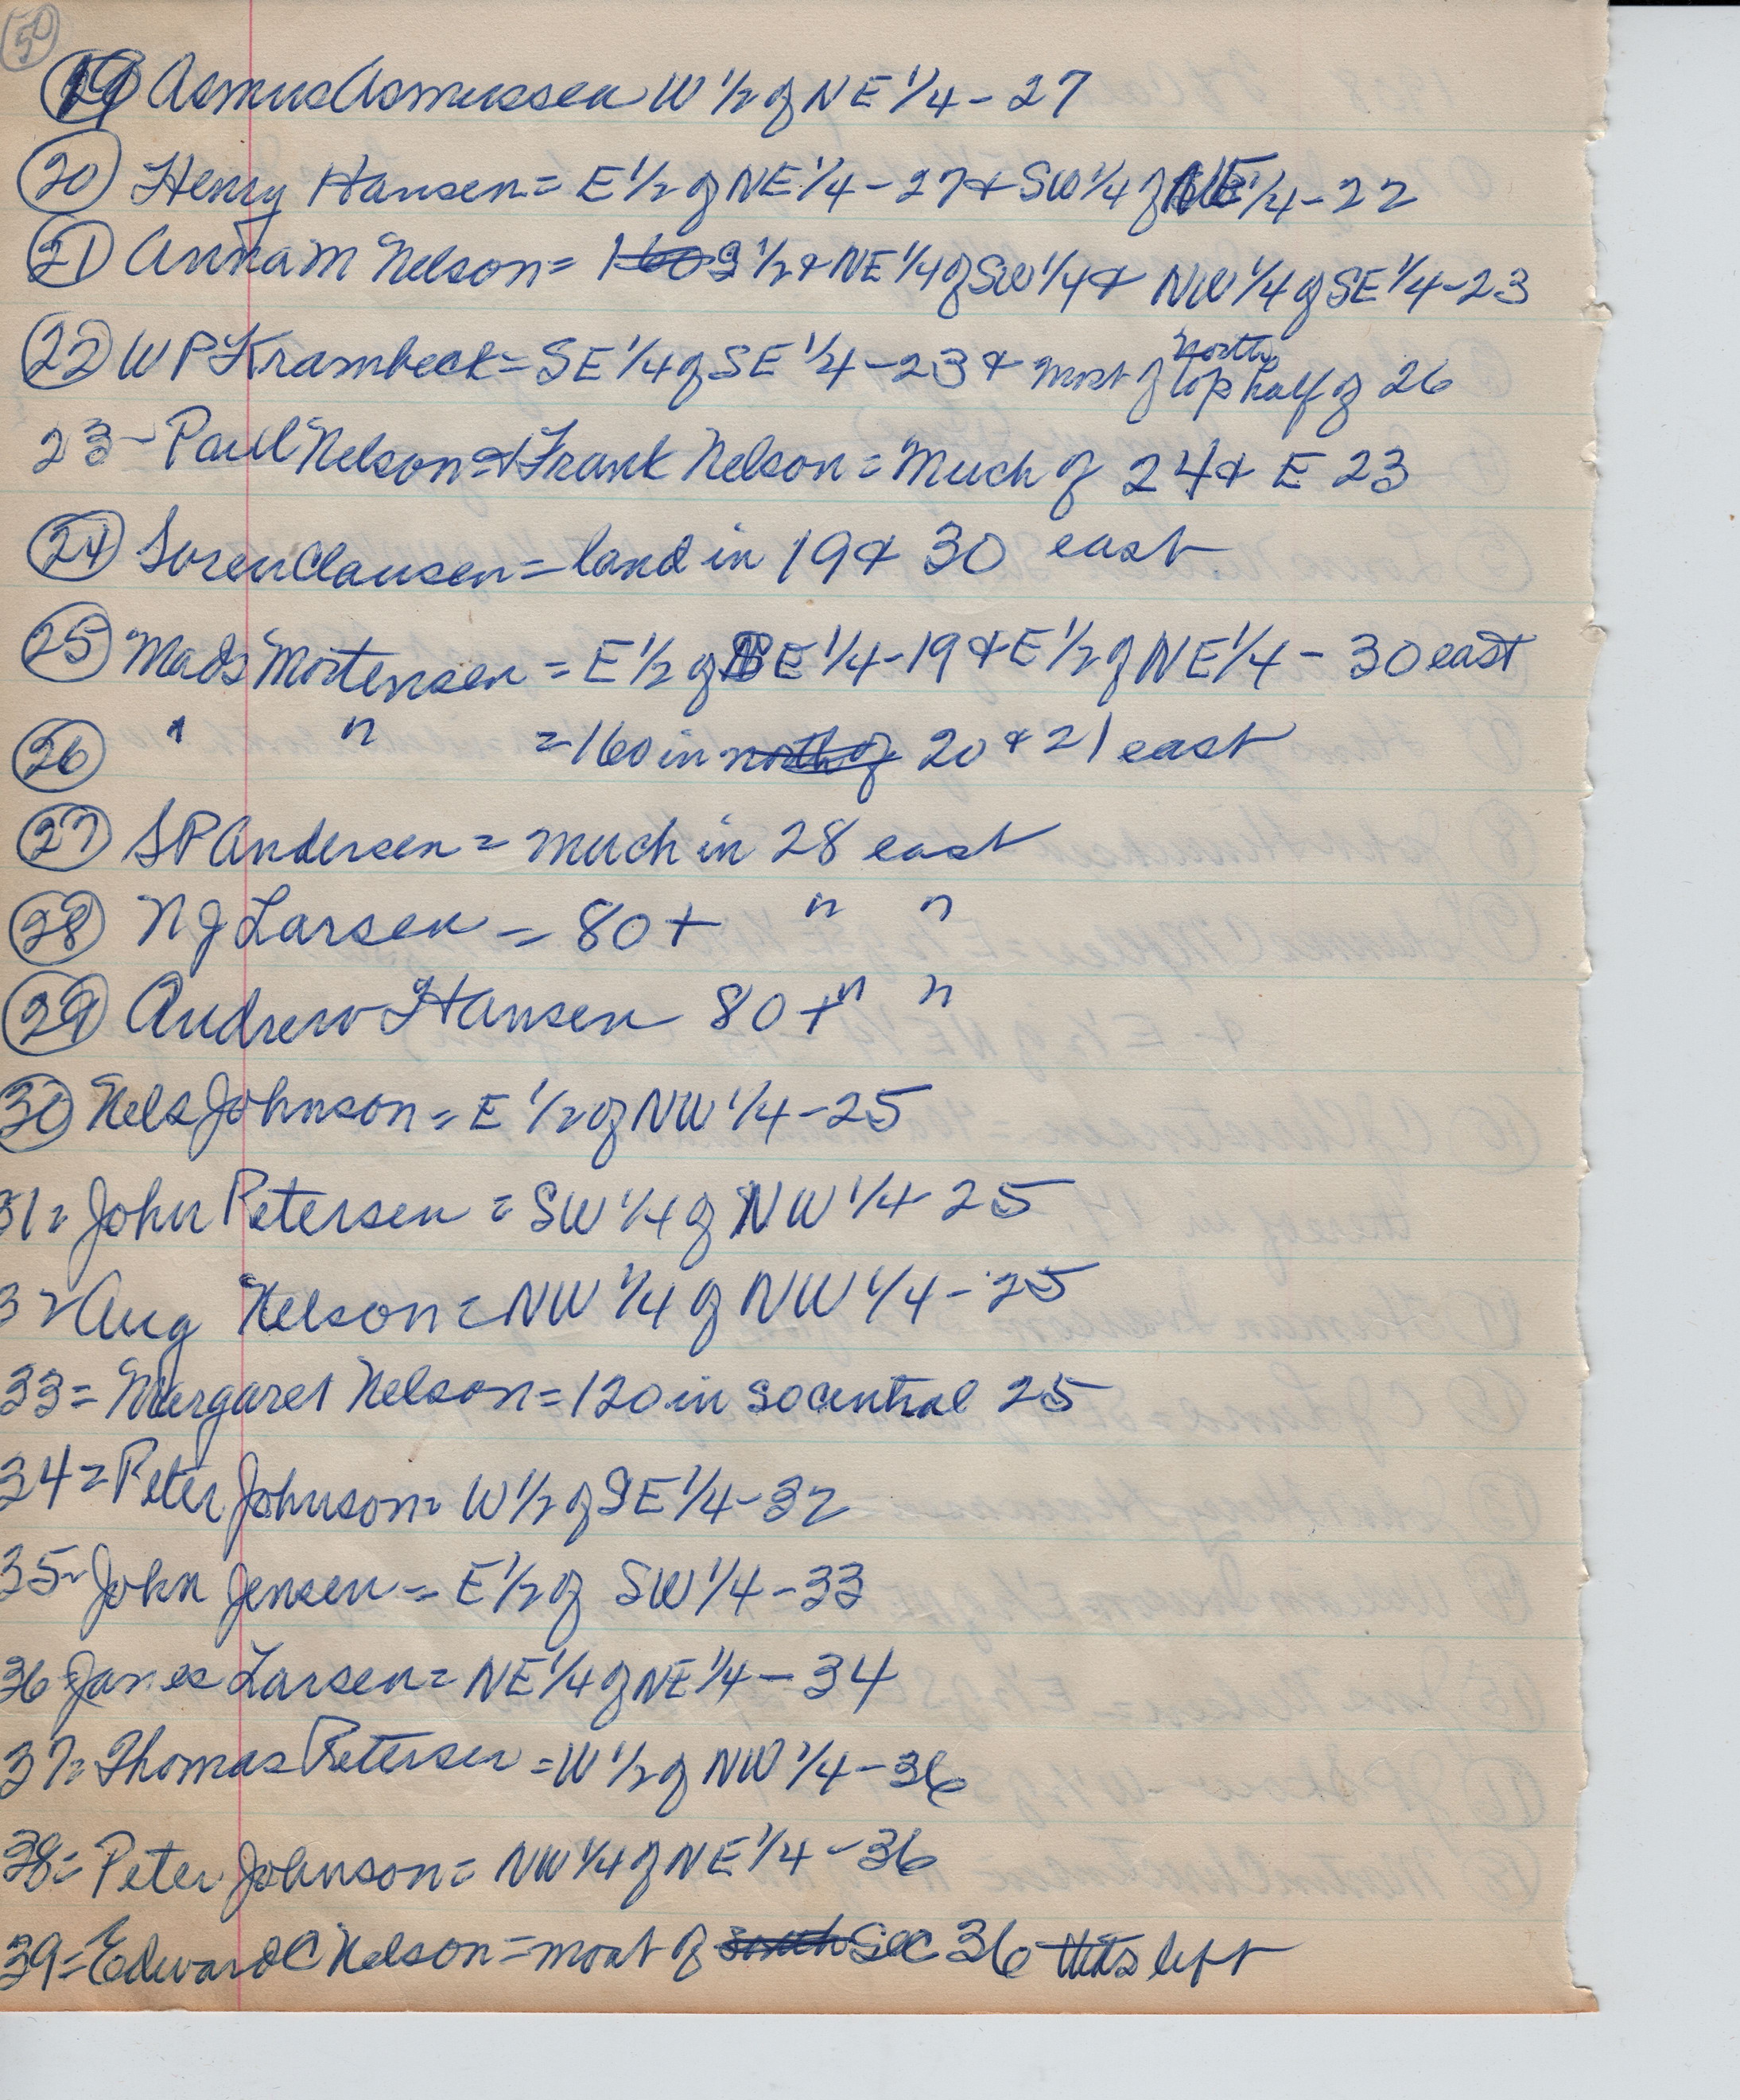 50
19 Asmus Asmussen W 1/2 of NE 1/4 - 27
20 Henry Hansen = E 1/2 of NE 1/4 - 27 & SW 1/4 of NE 1/4 - 22
21 Anna M Nelson = 160 S 1/2 & NE 1/4 of SW 1/4 & NW 1/4 of SE 1/4 - 23
north
22 W P Krambeck = SE 1/4 of SE 1/4 - 23 & most of top half of 26
23 - Paul Nelson = & Frank Nelson = Much of 24 & E 23
24 Soren Clausen = land in 19 & 30 east
25 Mads Mortensen = E 1/2 of SE 1/4 - 19 & E 1/2 of NE 1/4 - 30 east
26 " " = 160 in north of 20 & 21 east
27 S P Andersen = much in 28 east
28 N J Larsen = 80 + " "
29 Andrew Hansen 80 + " "
30 Nels Johnson = E 1/2 of NW 1/4 - 25
31 = John Petersen = SW 1/4 of NW 1/4 25
32 Aug Nelson = NW 1/4 of NW 1/4 - 25
33 = Margaret Nelson = 120 in so central 25
34 = Peter Johnson = W 1/2 of SE 1/4 - 32
35 - John Jensen = E 1/2 of SW 1/4 - 33
36 James Larsen = NE 1/4 of NE 1/4 - 34
37 = Thomas Petersen = W 1/2 of NW 1/4 - 36
38 = Peter Johnson = NW 1/4 of NE 1/4 - 36
39 = Edward C Nelson = most of south Sec 36 thats left